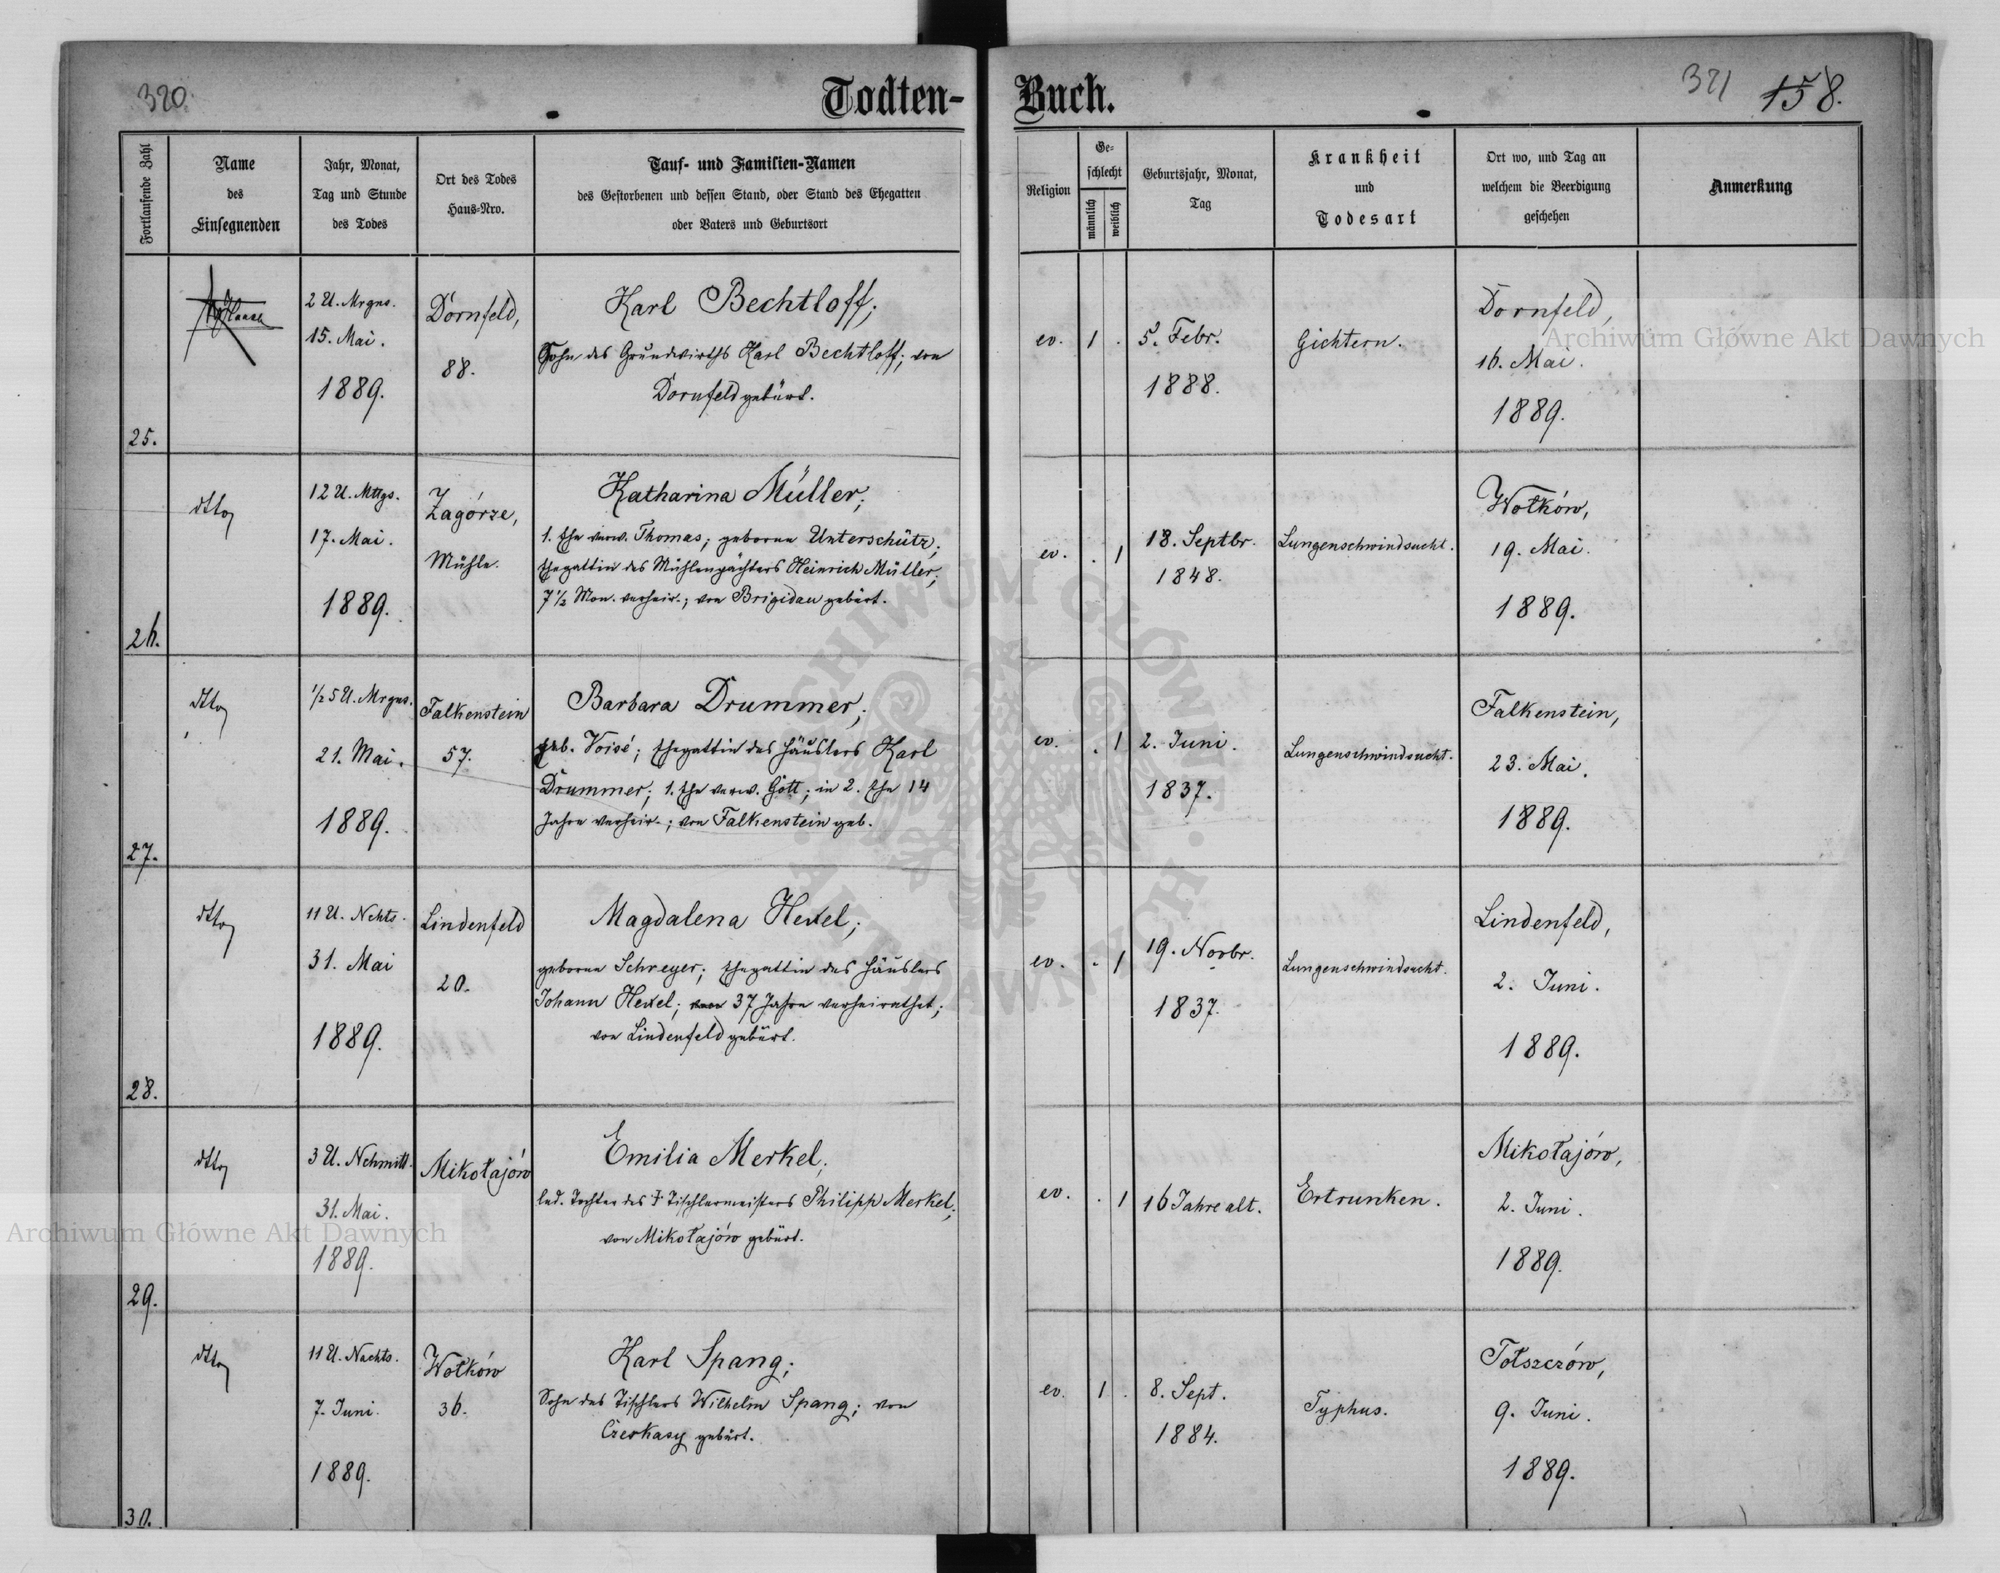 320.
Todten-
Buch.
321
158.
Fortlaufende Zahl
Name
des
Einsegnenden
Jahr, Monat,
Tag und Stunde
des Todes
Ort des Todes
Haus-Nro.
Tauf- und Familien-Namen
des Gestorbenen und dessen Stand, oder Stand des Ehegatten
oder Vaters und Geburtsort
Religion
Ge-
schlecht
männlich
weiblich
Geburtsjahr, Monat,
Tag
Krankheit
und
Todesart
Ort wo, und Tag an
welchem die Beerdigung
geschehen
Anmerkung
25.
2 U. Mrgns.
15. Mai.
1889.
Dornfeld,
88.
Karl Bechtloff;
Sohn des Grundwirths Karl Bechtloff; von
Dornfeld gebürt.
ev.
1
.
5. Febr.
1888.
Gichtern.
Dornfeld,
16. Mai.
1889.
26.
dtto
12 U. Mttgs.
17. Mai.
1889.
Zagórze,
Mühle.
Katharina Müller;
1. Ehe verw. Thomas; geborne Unterschütz;
Ehegattin des Mühlenpächters Heinrich Müller;
7 1/2 Mon. verheir.; von Brigidau gebürt.
ev.
.
1
18. Septbr.
1848.
Lungenschwindsucht.
Wołków,
19. Mai.
1889.
27.
dtto
1/2 5 U. Mrgns.
21. Mai.
1889.
Falkenstein
57.
Barbara Drummer;
geb. Voisé; Ehegattin des Häuslers Karl
Drummer; 1. Ehe verw. Gött; in 2. Ehe 14
Jahre verheir.; von Falkenstein geb.
ev.
.
1
2. Juni.
1837.
Lungenschwindsucht.
Falkenstein,
23. Mai.
1889.
28.
dtto
11 U. Nchts.
31. Mai
1889.
Lindenfeld
20.
Magdalena Hexel;
geborne Schreyer; Ehegattin des Häuslers
Johann Hexel; 37 Jahre verheirathet;
von Lindenfeld gebürt.
ev.
.
1
19. Novbr.
1837.
Lungenschwindsucht.
Lindenfeld,
2. Juni.
1889.
29.
dtto
3 U. Nchmitt.
31. Mai.
1889.
Mikołajów
Emilia Merkel;
led. Tochter des † Tischlermeisters Philipp Merkel;
von Mikołajów gebürt.
ev.
.
1
16 Jahre alt.
Ertrunken.
Mikołajów,
2. Juni.
1889.
30.
dtto
11 U. Nachts.
7. Juni.
1889.
Wołków
36.
Karl Spang;
Sohn des Tischlers Wilhelm Spang; von
Czerkasy gebürt.
ev.
1
.
8. Sept.
1884.
Typhus.
Tołszczów,
9. Juni.
1889.
Archiwum Główne Akt Dawnych
Archiwum Główne Akt Dawnych